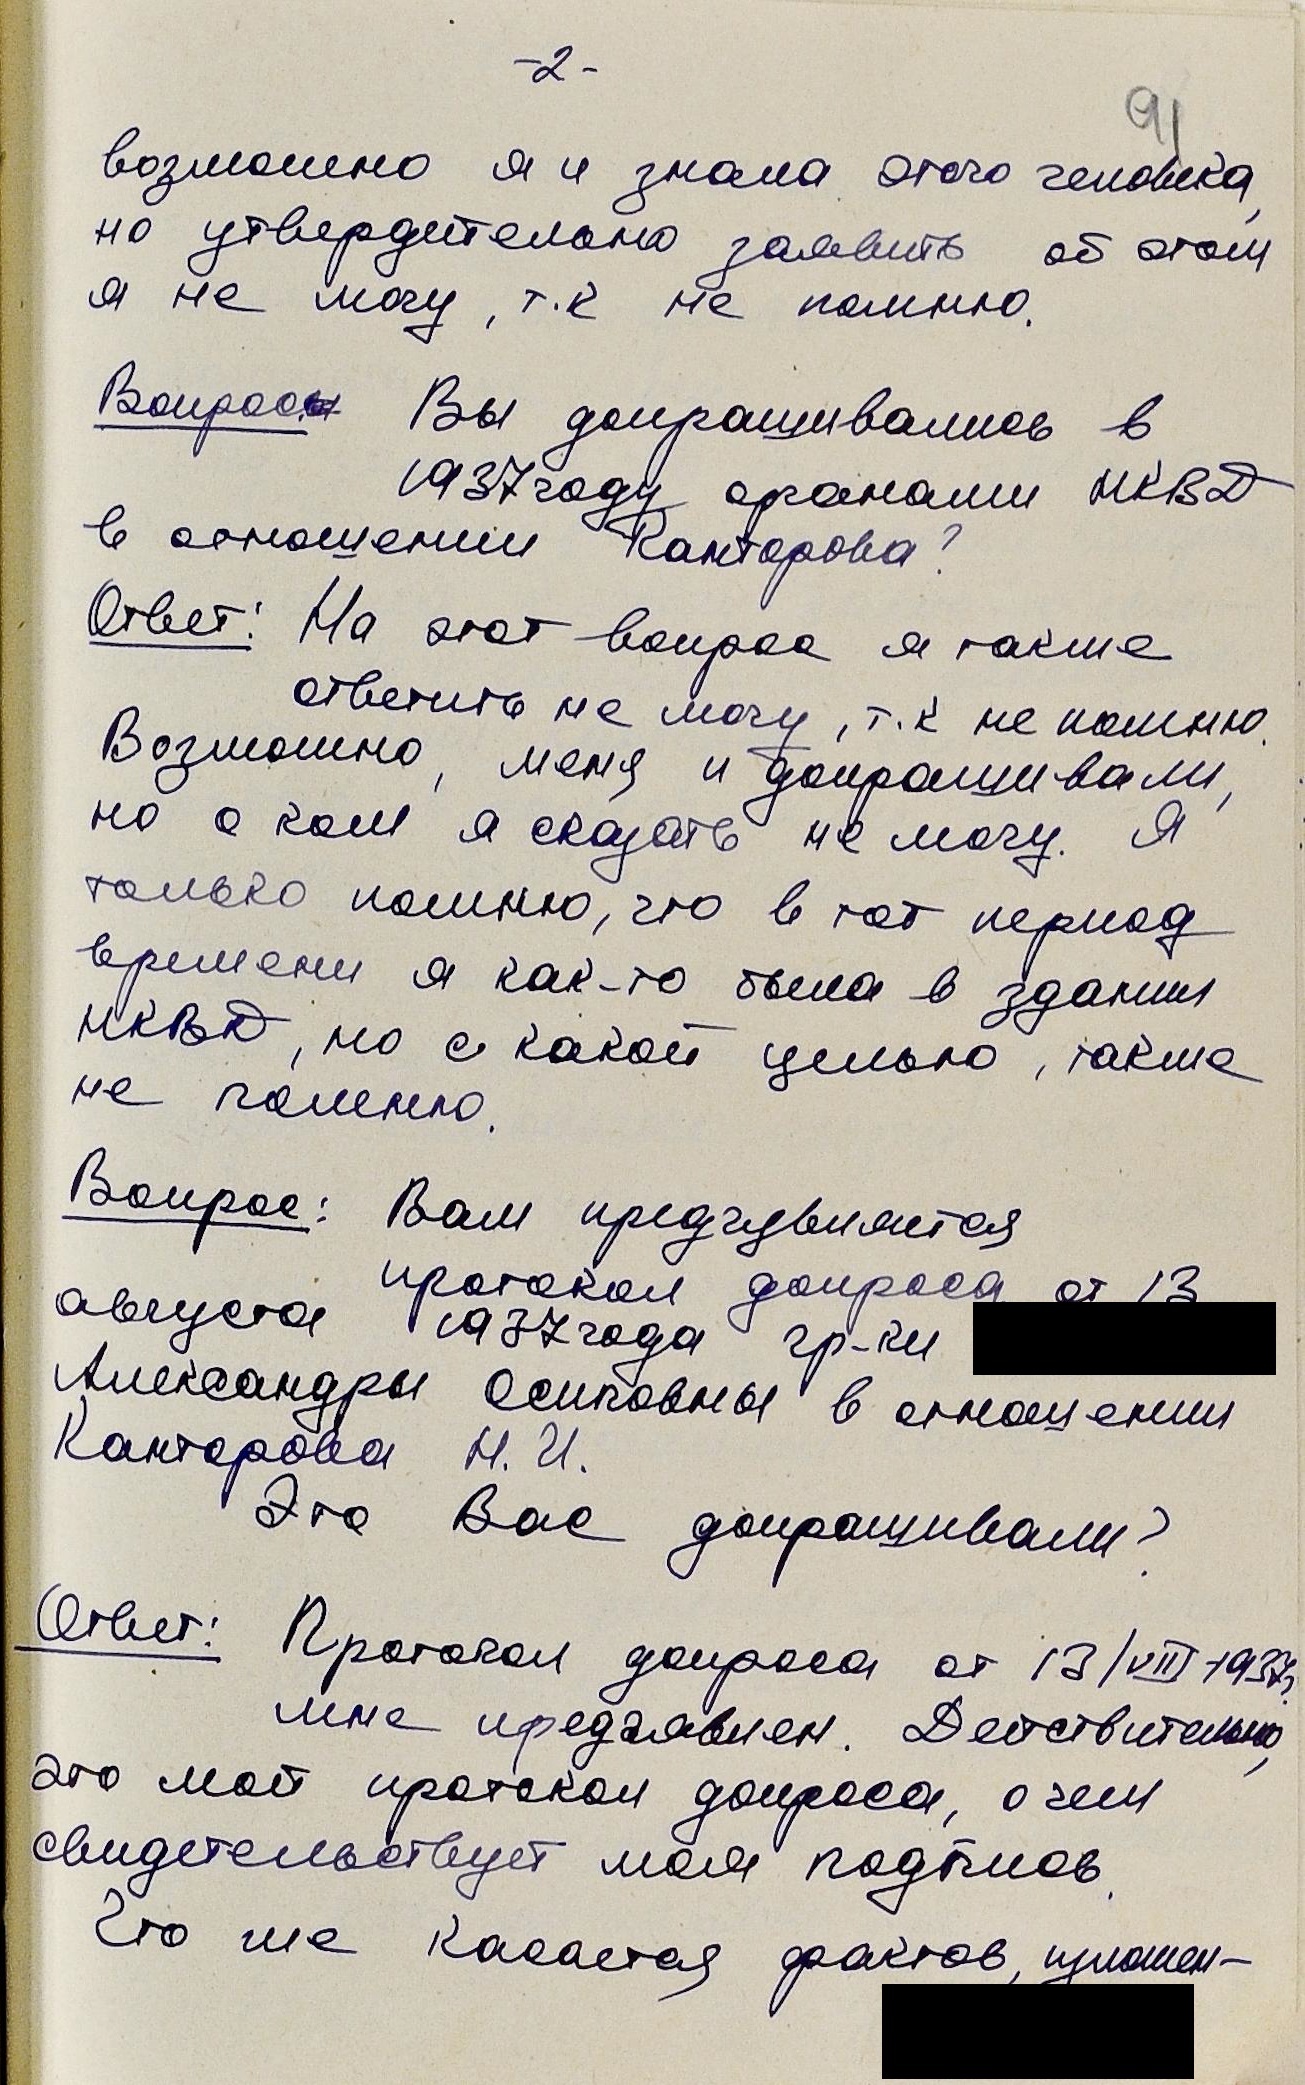 -2-
91
возможно я и знала этого человека,
но утвердительно заявить об этом
я не могу, т.к не помню.
Вопрос: Вы допрашивались в
1937 году органами НКВД
в отношении Канторова?
Ответ: На этот вопрос я также
ответить не могу, т.к не помню.
Возможно, меня и допрашивали,
но о ком я сказать не могу. Я
только помню, что в тот период
времени я как-то была в здании
НКВД, но с какой целью, также
не помню.
Вопрос: Вам предъявляется
протокол допроса от 13
августа 1937 года гр-ки
Александры Осиповны в отношении
Канторова Н. И.
Это Вас допрашивали?
Ответ: Протокол допроса от 13/VIII-1937г.
мне предъявлен. Действительно,
это мой протокол допроса, о чем
свидетельствует моя подпись.
Что же касается фактов, изложен-